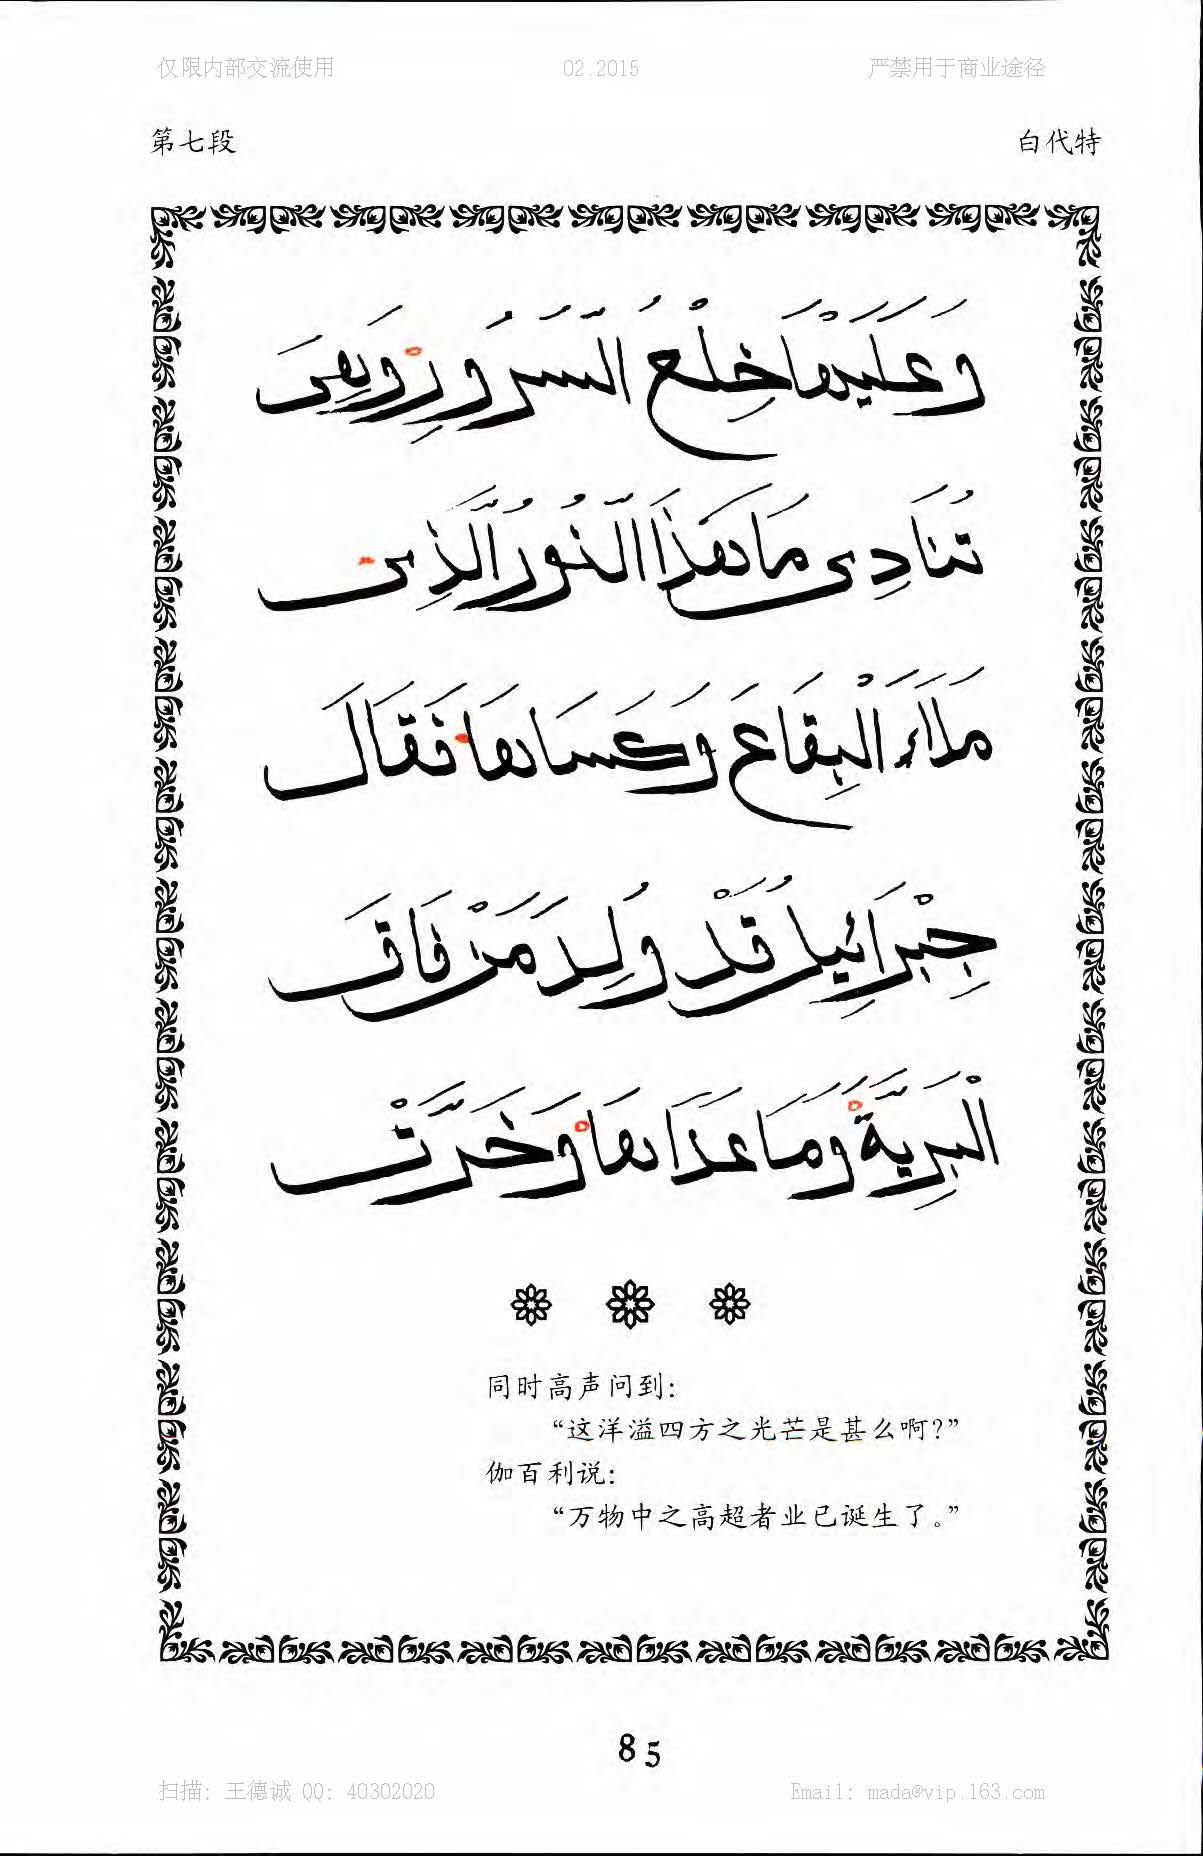 仅限内部交流使用 02.2015 严禁用于商业途径
第七段 白代特
وَعَلَيْهَا خِلَعُ السُّرُورِ وَهِىَ
تُنَادِى مَا هَذَا النُّورُ الَّذِى
مَلَاءَ الْبِقَاعَ وَكَسَاهَا فَقَالَ
جِبْرَائِيلُ قَدْ وُلِدَ مَنْ فَاقَ
الْبَرِيَّةَ وَمَا عَدَاهَا وَخَرَّتْ
同时高声问到：
“这洋溢四方之光芒是甚么啊？”
伽百利说：
“万物中之高超者业已诞生了。”
85
扫描：王德诚 QQ：40302020 Email：mada@vip.163.com